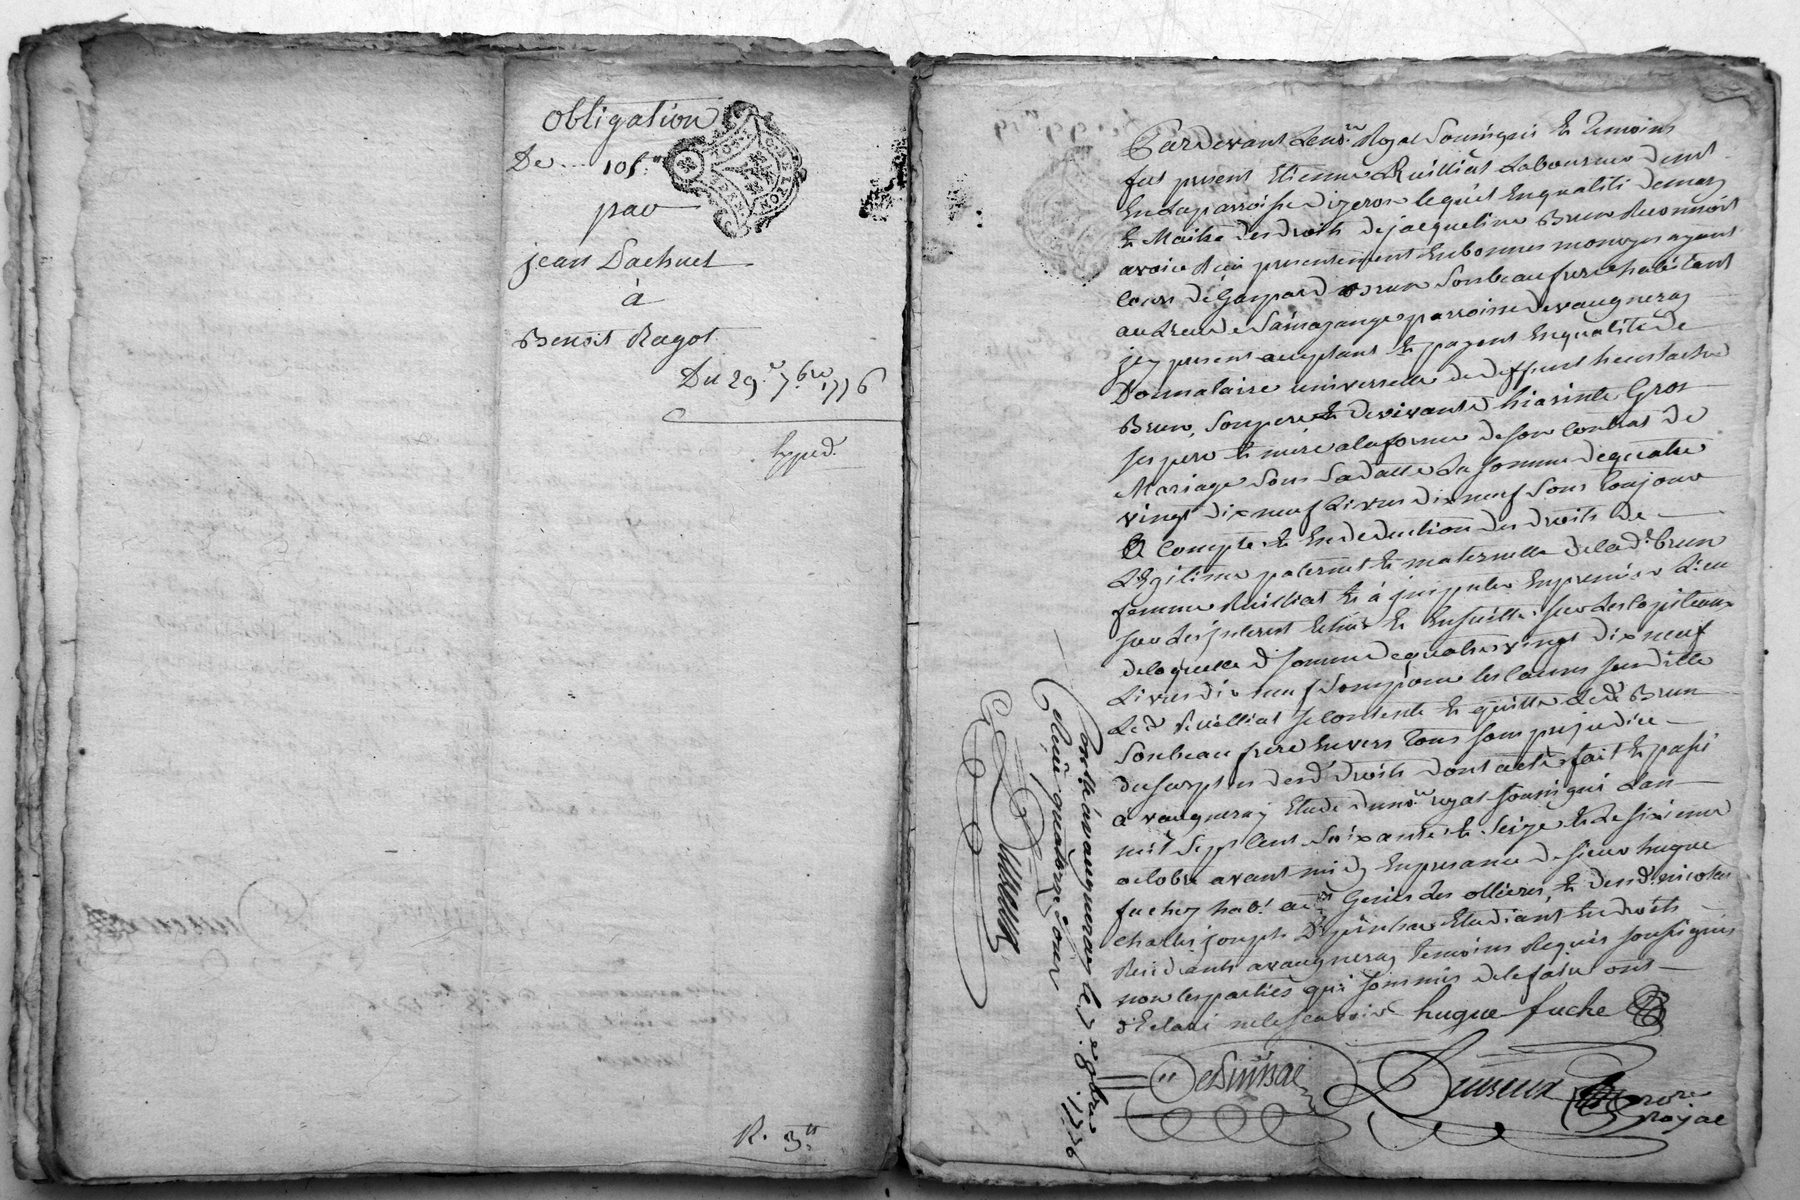 Obligation
De .... 105.tt
par
jean Dachuet
à
Benoit Ragot
Du 29.e 7.bre 1776
Exped.
R. 3tt
Par Devant Le no.re Royal Soussigné Et temoins
fut present Etienne Ruilliat Laboureur demt
En La parroisse dizeron lequel En qualité de mary
Et Maitre des droits de jacqueline Brun Reconnoit
avoir Reçu presentement En bonnes monoyes ayant
cours de Gaspard Brun Son beau frere habitant
au Lieu de parroisse de vaugneray
jcy present acceptant Et payent En qualité de
Donnataire universelle de deffunt heustache
Brun, Son pere Et de vivante hiacinte Gros
ses pere Et mere a la forme de son Contrat de
Mariage Sous Sa datte La Somme de quatre
vingt dix neuf Livres dix neuf Sous toujours
a Compte Et En deduction des droits de
Légitime paternel Et maternelle de lad.e Brun
femme Ruilliat Et à jmputer En premier Lieu
sur Les jnterest Echus Et Ensuitte sur Les Capiteaux
de laquelle d. somme de quatre vingt dix neuf
Livres dix neuf Sous pour les causes susditte
Led. Ruilliat se contente Et quitte Led. Brun
Son beau frere Envers tous sans prejudice
du surplus desd. droits dont acte fait Et passé
à vaugneray Etude du no.re royal soussigné L'an
mil Sept Cent Soixante Et Seize Et Le sixieme
octobre avant midy En presance de sieur hugue
fuchez hab.t au Genés Les ollieres, Et de sr. nicolas
Charles joseph Etudiant En droits
Residants a vaugneray temoins Requis soussignés
non les parties qui sommés de le faire ont
d'Eclaré ne le scavoir hugue fuche
Dussieux no.re
Royal
Con.llé à vaugneray le 7.e 8bre 1776
Reçu quatorze sous
Dussieux